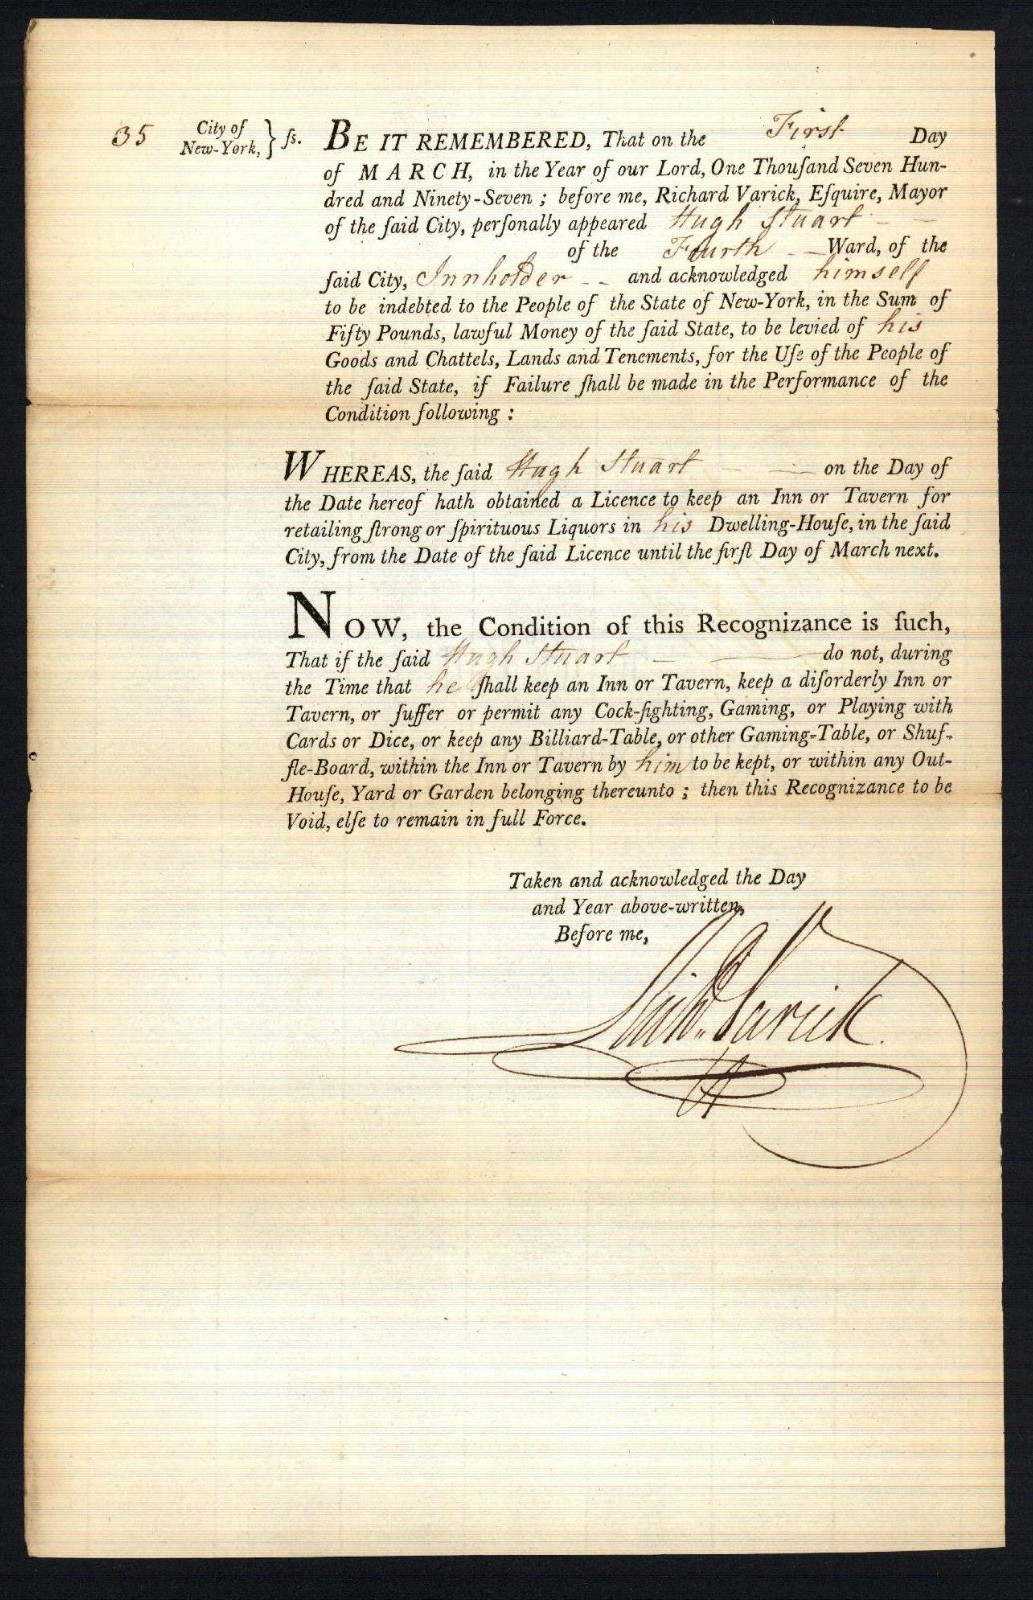 35 City of New-York, } ſs. BE IT REMEMBERED, That on the First Day
of MARCH, in the Year of our Lord, One Thouſand Seven Hun-
dred and Ninety-Seven ; before me, Richard Varick, Eſquire, Mayor
of the ſaid City, perſonally appeared Hugh Stuart
of the Fourth Ward, of the
ſaid City, Innholder and acknowledged himself
to be indebted to the People of the State of New-York, in the Sum of
Fifty Pounds, lawful Money of the ſaid State, to be levied of his
Goods and Chattels, Lands and Tenements, for the Uſe of the People of
the ſaid State, if Failure ſhall be made in the Performance of the
Condition following :
WHEREAS, the ſaid Hugh Stuart on the Day of
the Date hereof hath obtained a Licence to keep an Inn or Tavern for
retailing ſtrong or ſpirituous Liquors in his Dwelling-Houſe, in the ſaid
City, from the Date of the ſaid Licence until the firſt Day of March next.
NOW, the Condition of this Recognizance is ſuch,
That if the ſaid Hugh Stuart do not, during
the Time that he ſhall keep an Inn or Tavern, keep a diſorderly Inn or
Tavern, or ſuffer or permit any Cock-fighting, Gaming, or Playing with
Cards or Dice, or keep any Billiard-Table, or other Gaming-Table, or Shuf-
fle-Board, within the Inn or Tavern by him to be kept, or within any Out-
Houſe, Yard or Garden belonging thereunto ; then this Recognizance to be
Void, elſe to remain in full Force.
Taken and acknowledged the Day
and Year above-written,
Before me,
Richd. Varick